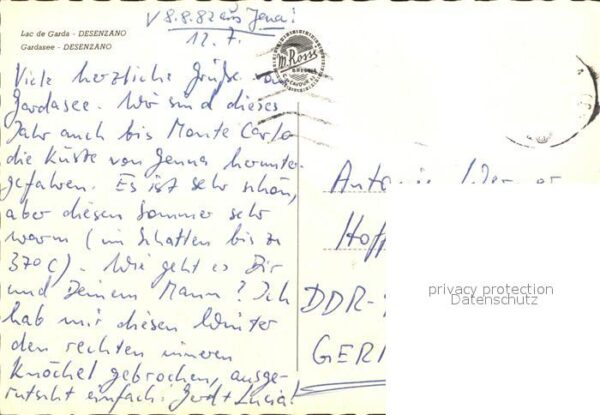 V 8.8.82 aus Jena!
12.7.
Lac de Garda - DESENZANO
Gardasee - DESENZANO
M. Rossi
Viele herzliche Grüße vom
Gardasee. Wir sind dieses
Jahr auch bis Monte Carlo
die Küste von Genua herunter-
gefahren. Es ist sehr schön,
aber diesen Sommer sehr
warm (im Schatten bis zu
37°C). Wie geht es Dir
und Deinem Mann? Ich
hab mir diesen Winter
den rechten inneren
Knöchel gebrochen, ausge-
rutscht einfach. Gerd + Lucia!
Hoff
DDR-
GER
privacy protection
Datenschutz